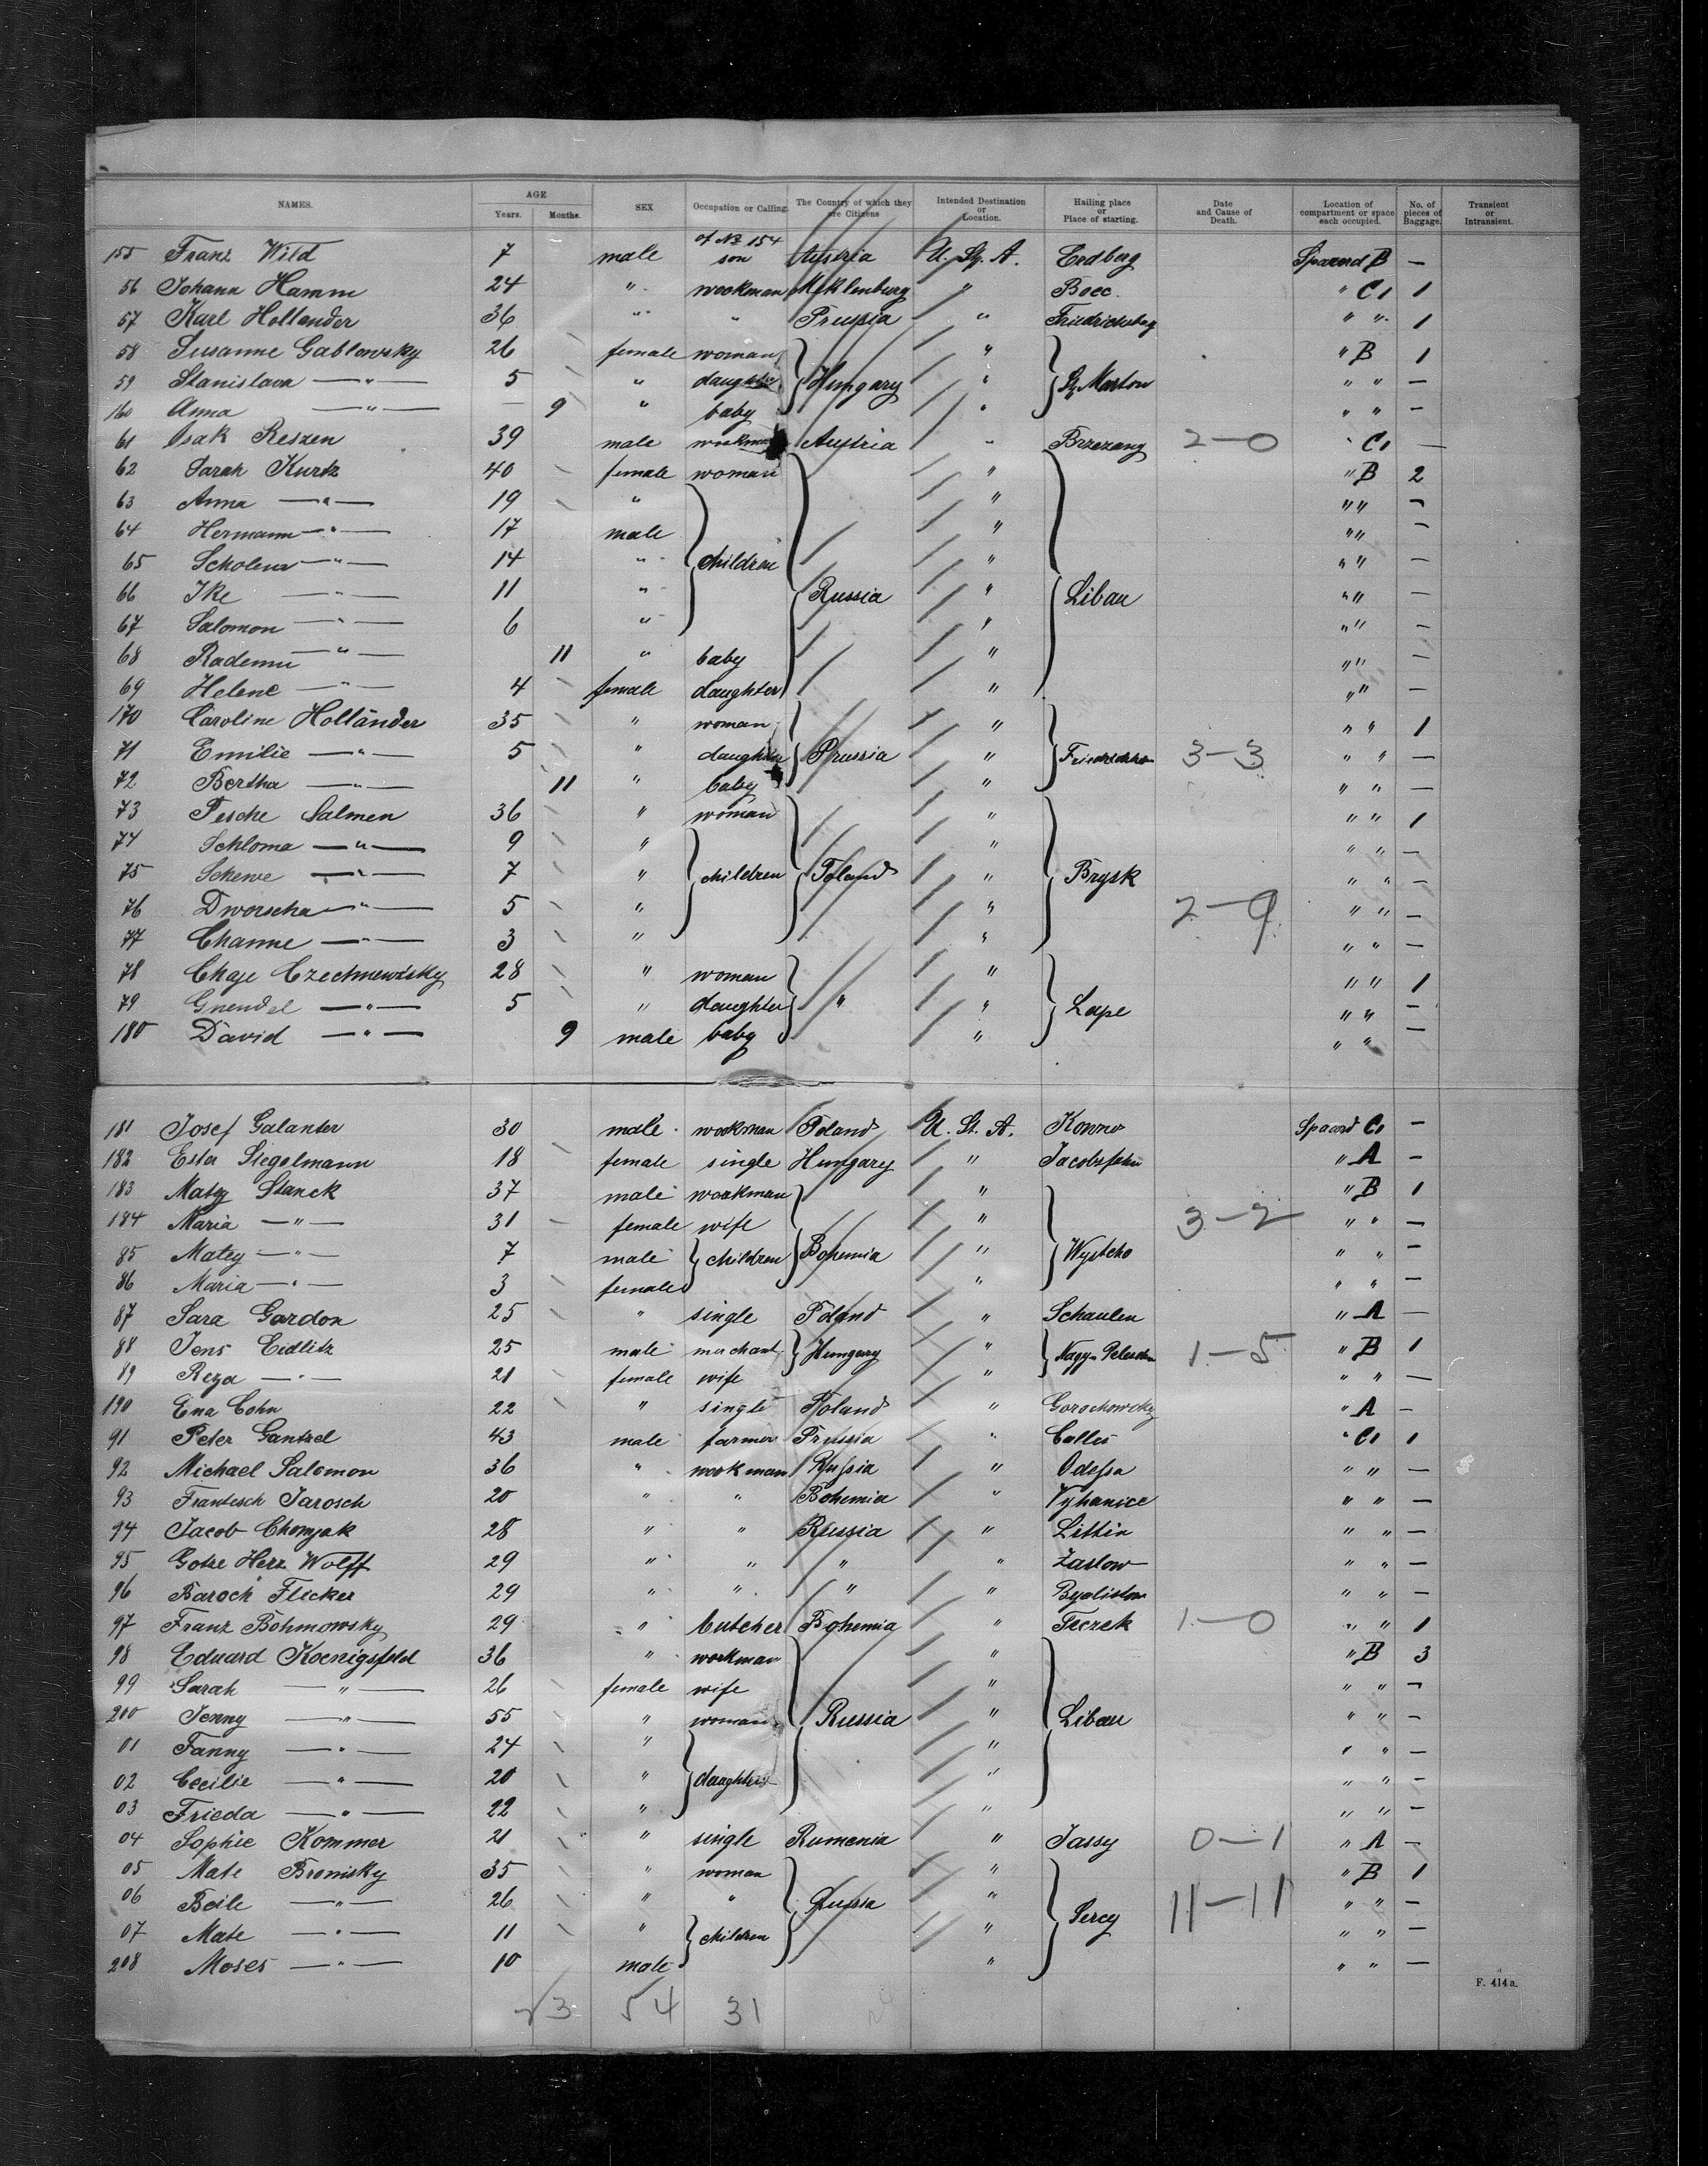 NAMES. AGE Years. Months. SEX Occupation or Calling. The Country of which they are Citizens Intended Destination or Location. Hailing place or Place of starting. Date and Cause of Death. Location of compartment or space each occupied. No. of pieces of Baggage. Transient or Intransient.
of No 154
155 Franz Wild 7 male son Austria U. St. A. Erdberg B —
56 Johann Hamm 24 " workman Meklenburg " Boec. " C1 1
57 Karl Hollander 36 " " Prussia " Friedrichsberg " " 1
58 Susanne Gablowsky 26 female woman " " B 1
59 Stanislava —"— 5 " daughter Hungary " St. Marton " " —
160 Anna —"— — 9 " baby " " " —
61 Isak Reszen 39 male workman Austria " Brzezang 2—0 " C1 —
62 Sarah Kurtz 40 female woman " " B 2
63 Anna —"— 19 " " " " —
64 Hermann —"— 17 male " " " —
65 —"— 14 " children " " " —
66 Ike —"— 11 " Russia " Libau " " —
67 Salomon —"— 6 " " " " —
68 —"— 11 " baby " " " —
69 Helene —"— 4 female daughter " " " —
170 Caroline Holländer 35 " woman " " " 1
71 Emilie —"— 5 " daughter Prussia " 3—3 " " —
72 Bertha —"— 11 " baby " " " —
73 Pesche Salmen 36 " woman " " " 1
74 Schloma —"— 9 " " " " —
75 Schewe —"— 7 " children Poland " Brysk " " —
76 Dworscha —"— 5 " " 2—9 " " —
77 Channe —"— 3 " " " " —
78 Chaje Czechnewisky 28 " woman " " " 1
79 Gnendel —"— 5 " daughter " " Lape " " —
180 David —"— 9 male baby " " " —
181 Josef Galanter 30 male workman Poland U. St. A. Kowno C1 —
182 Ester Siegelmann 18 female single Hungary " " A —
183 Matej Stanek 37 male workman " " B 1
184 Maria —"— 31 female wife " 3—2 " " —
85 Matej —"— 7 male children Bohemia " " " —
86 Maria —"— 3 female " " " —
87 Sara Gordon 25 " single Poland " Schaulen " A —
88 Jens Eidlitz 25 male merchant Hungary " 1—5 " B 1
89 Reza —"— 21 female wife " " " —
190 Ena Cohn 22 " single Poland " Gorochowsky " A —
91 Peter Gantzel 43 male farmer Prussia " " C1 1
92 Michael Salomon 36 " workman Russia " Odessa " " —
93 Frantesch Jarosch 20 " " Bohemia " " " —
94 Jacob Chomjak 28 " " Russia " Littin " " —
95 Herz Wolff 29 " " " " Zaslow " " —
96 Baroch Flicker 29 " " " " " " —
97 Franz Böhmowsky 29 " butcher Bohemia " 1—0 " " 1
98 Eduard Koenigsfeld 36 " workman " " B 3
99 Sarah —"— 26 female wife " " " —
200 Jenny —"— 55 " woman Russia " Libau " " —
01 Fanny —"— 24 " " " " —
02 Cecilie —"— 20 " daughters " " " —
03 Frieda —"— 22 " " " " —
04 Sophie Kommer 21 " single Rumenia " Jassy 0—1 " A —
05 Mate Bronisky 35 " woman " " B 1
06 Beile —"— 26 " " Russia " Sercy 11—11 " " —
07 Mate —"— 11 " children " " " —
208 Moses —"— 10 male " " " —
F. 414a.
54 31